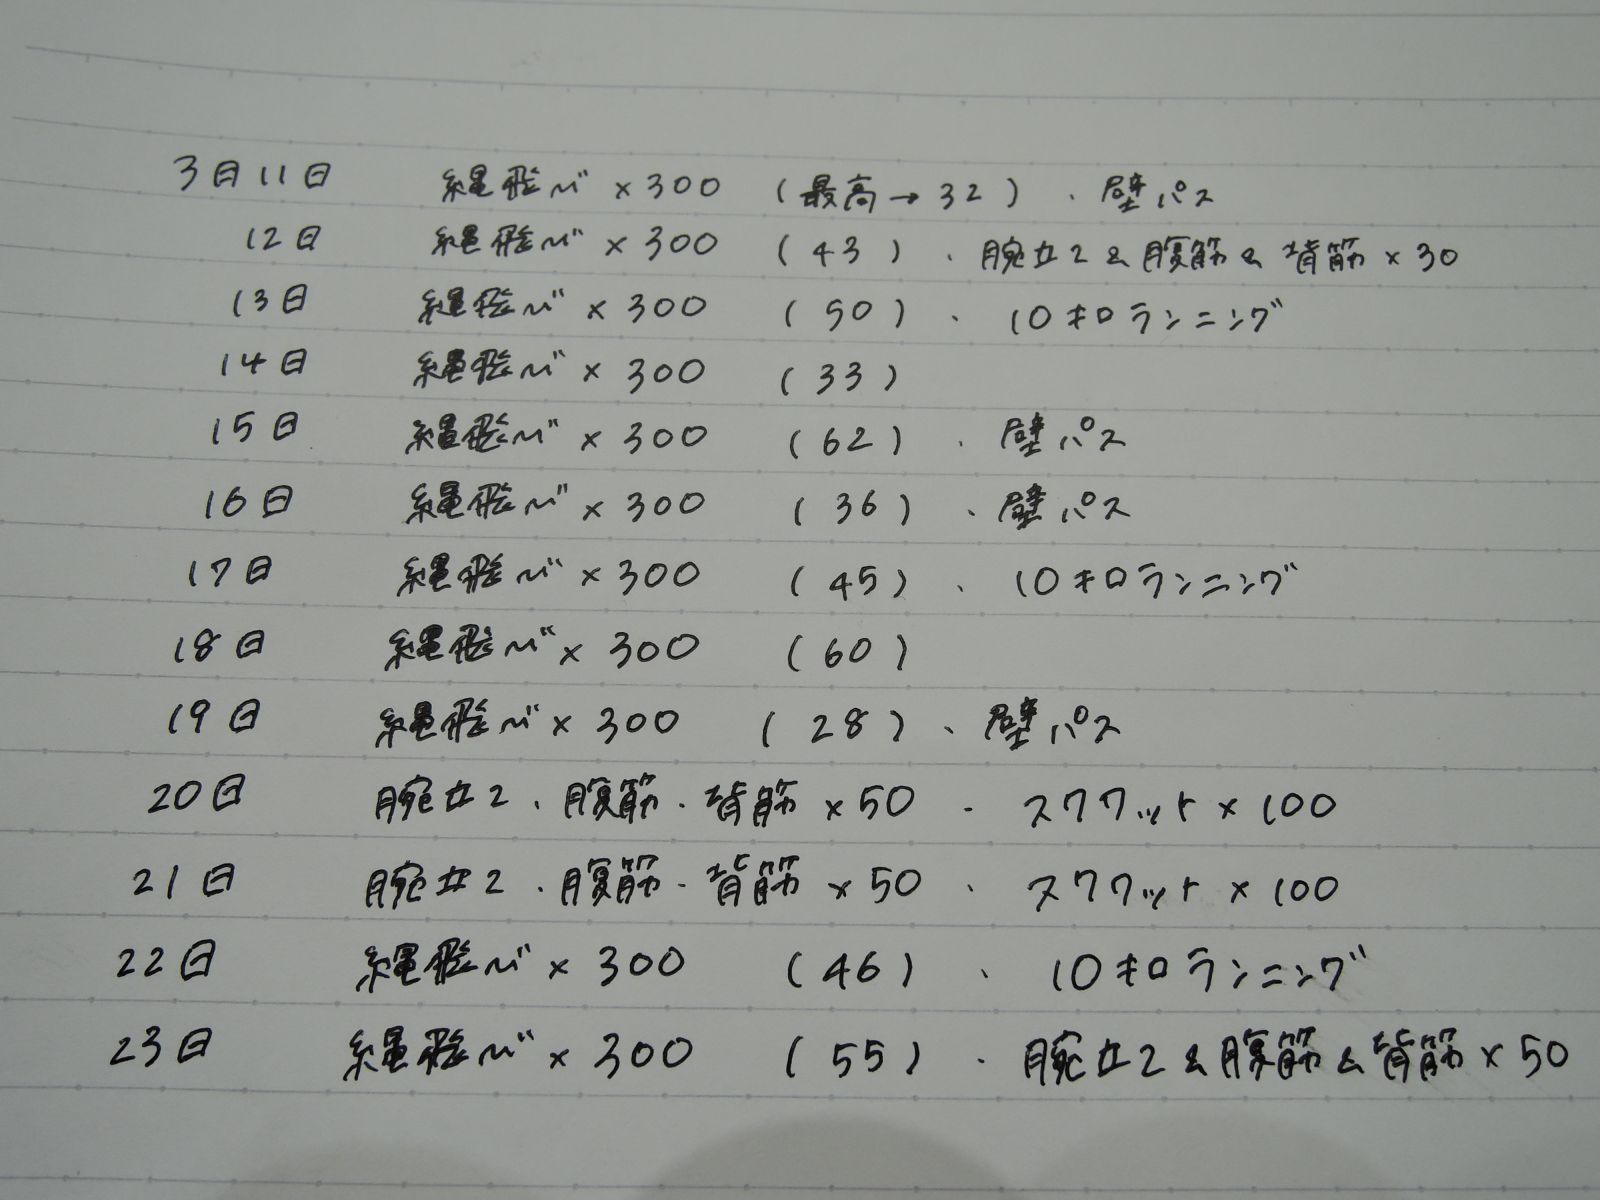 3月11日 縄飛び×300 (最高→32)・壁パス
12日 縄飛び×300 (43)・腕立2&腹筋&背筋×30
13日 縄飛び×300 (50)・10キロランニング
14日 縄飛び×300 (33)
15日 縄飛び×300 (62)・壁パス
16日 縄飛び×300 (36)・壁パス
17日 縄飛び×300 (45)・10キロランニング
18日 縄飛び×300 (60)
19日 縄飛び×300 (28)・壁パス
20日 腕立2・腹筋・背筋×50・スクワット×100
21日 腕立2・腹筋・背筋×50・スクワット×100
22日 縄飛び×300 (46)・10キロランニング
23日 縄飛び×300 (55)・腕立2&腹筋&背筋×50